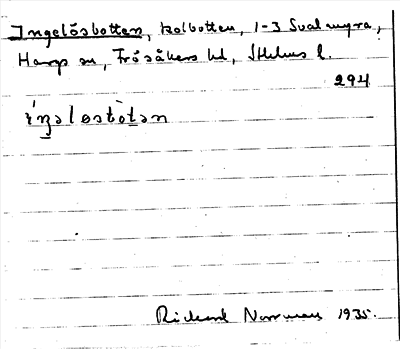 Ingelösbotten, kolbotten, 1-3 Svalmyra,
Hargs sn, Frösåkers hd, Sthlms l.
294
íŋəløsbòtən
Rickard Norrman 1935.